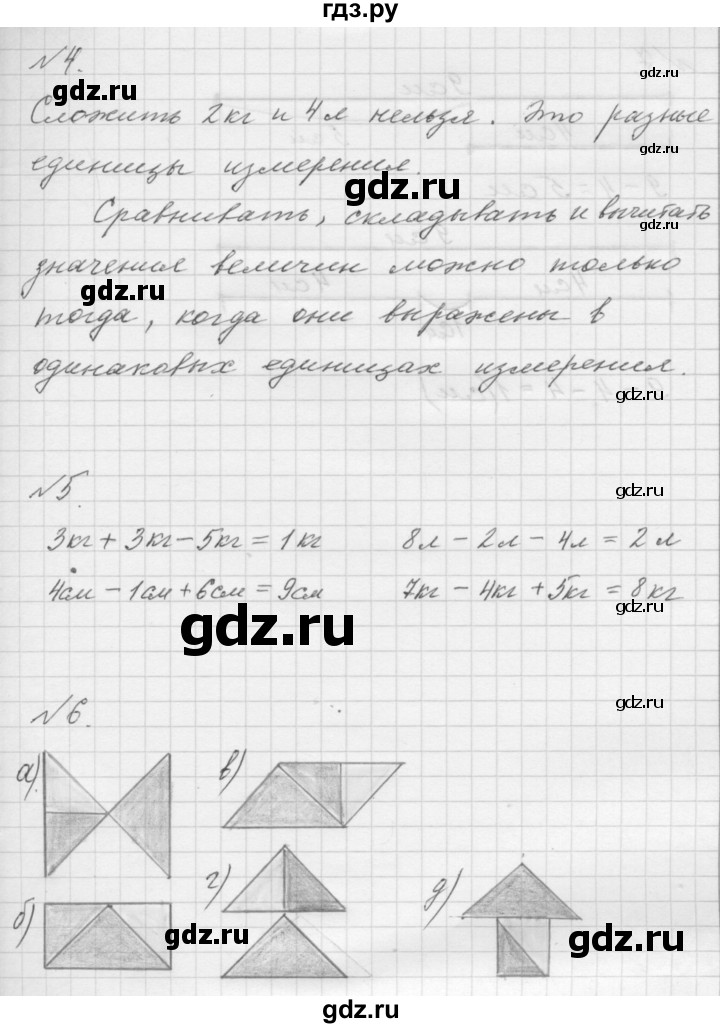 гдз.ру
№4.
gdz.ru
gdz.ru
Сложить 2кг и 4л нельзя. Это разные
gdz.ru
единицы измерения.
gdz.ru
Сравнивать, складывать и вычитать
gdz.ru
значения величин можно только
gdz.ru
тогда, когда они выражены в
gdz.ru
одинаковых единицах измерения.
gdz.ru
№5.
gdz.ru
3кг + 3кг - 5кг = 1кг 8л - 2л - 4л = 2л
4см - 1см + 6см = 9см 7кг - 4кг + 5кг = 8кг
gdz.ru
gdz.ru
№6.
gdz.ru
а) в)
gdz.ru
gdz.ru
б) г) д)
gdz.ru
gdz.ru
gdz.ru
gdz.ru